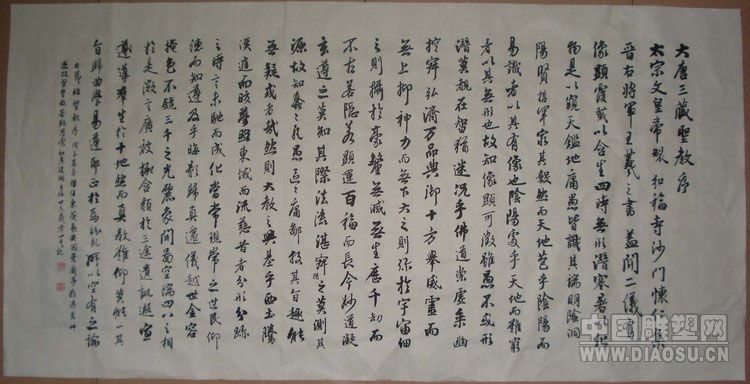 大唐三藏聖教序
太宗文皇帝製 弘福寺沙門懷仁集
晉右將軍王羲之書 蓋聞二儀有
像顯覆載以含生四時無形潛寒暑以化
物是以窺天鑑地庸愚皆識其端明陰洞
陽賢哲罕窮其數然而天地苞乎陰陽而
易識者以其有像也陰陽處乎天地而難窮
者以其無形也故知像顯可徵雖愚不惑形
潛莫覩在智猶迷況乎佛道崇虛乘幽
控寂弘濟万品典御十方舉威靈而
無上抑神力而無下大之則弥於宇宙細
之則攝於豪釐無滅無生歷千劫而
不古若隱若顯運百福而長今妙道凝
玄遵之莫知其際法流湛寂挹之莫測其
源故知蠢蠢凡愚區區庸鄙投其旨趣能
無疑或者哉然則大教之興基乎西土騰
漢庭而皎夢照東域而流慈昔者分形分跡
之時言未馳而成化當常現常之世民仰
德而知遵及乎晦影歸真遷儀越世金容
掩色不鏡三千之光麗象開圖空端四八之相
於是微言廣被拯含類於三途遺訓遐宣
導群生於十地然而真教難仰莫能一其
旨歸曲學易遵邪正於焉紛糺所以空有之論
中国雕塑网
WWW.DIAOSU.CN